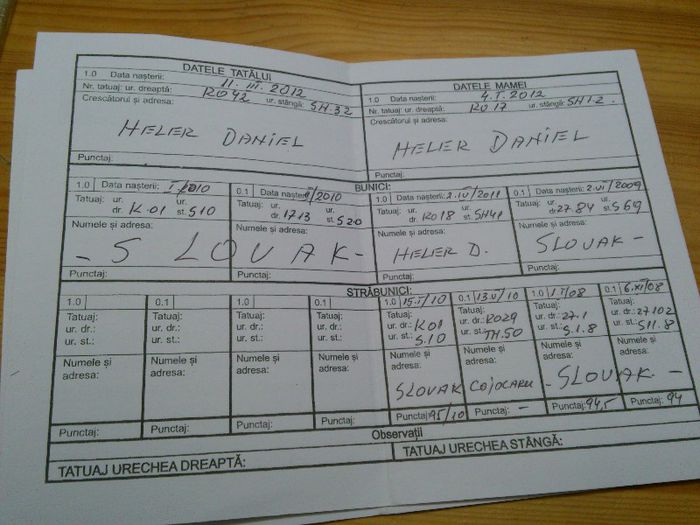 DATELE TATĂLUI
1.0 Data nașterii: 11. III. 2012
Nr. tatuaj: ur. dreaptă: RO42 ur. stângă: SH.32
Crescătorul și adresa:
HELER DANIEL
Punctaj:
DATELE MAMEI
1.0 Data nașterii: 4.I.2012
Nr. tatuaj: ur. dreaptă: RO17 ur. stângă: SH1.2
Crescătorul și adresa:
HELER DANIEL
Punctaj:
BUNICI:
1.0 Data nașterii: I/2010
Tatuaj: ur. dr. K.01 ur. st. S10
0.1 Data nașterii: /2010
Tatuaj: ur. dr. 1713 ur. st. S20
Numele și adresa: Numele și adresa:
- S LOVAK -
Punctaj: Punctaj:
1.0 Data nașterii: 2.IV/2011
Tatuaj: ur. dr. RO18 ur. st. SH41
Numele și adresa:
HELER D.
Punctaj:
0.1 Data nașterii: 2.VI/2009
Tatuaj: ur. dr. 27.84 ur. st. S69
Numele și adresa:
SLOVAK -
Punctaj:
STRĂBUNICI:
1.0
Tatuaj:
ur. dr.:
ur. st.:
Numele și
adresa:
Punctaj:
0.1
Tatuaj:
ur. dr.:
ur. st.:
Numele și
adresa:
Punctaj:
1.0
Tatuaj:
ur. dr.:
ur. st.:
Numele și
adresa:
Punctaj:
0.1
Tatuaj:
ur. dr.:
ur. st.:
Numele și
adresa:
Punctaj:
1.0 /10
Tatuaj:
ur. dr.: K01
ur. st.: S.10
Numele și
adresa:
SLOVAK
Punctaj: 95/10
0.1 13.VI/10
Tatuaj:
ur. dr.: RO29
ur. st.: TM.50
Numele și
adresa:
COJOCARU
Punctaj: -
1.0 /08
Tatuaj:
ur. dr.: 27.1
ur. st.: S.1.8
Numele și
adresa:
- SLOVAK. -
Punctaj: 94,5
0.1 6.XI/08
Tatuaj:
ur. dr.: 27.102
ur. st.: S11.8
Numele și
adresa:
Punctaj: 94
Observații
TATUAJ URECHEA DREAPTĂ:
TATUAJ URECHEA STÂNGĂ: